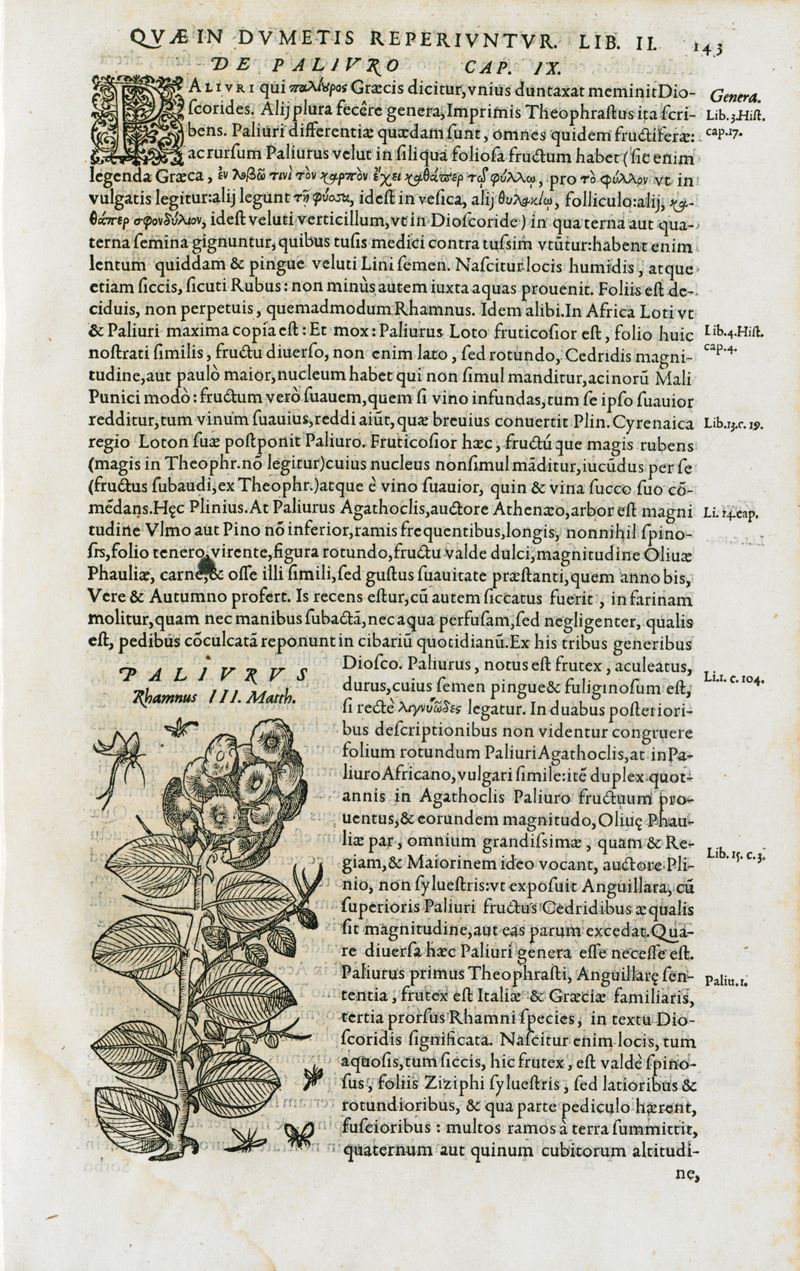 QVÆ IN DVMETIS REPERIVNTVR. LIB. II. 143
DE PALIVRO CAP. IX.
PALIVRI qui παλίυρος Græcis dicitur, vnius duntaxat meminit Dio-
ſcorides. Alij plura fecêre genera, Imprimis Theophraſtus ita ſcri-
bens. Paliuri differentiæ quædam ſunt, omnes quidem fructiferæ:
ac rurſum Paliurus velut in ſiliqua folioſa fructum habet (ſic enim
legenda Græca, ἐν λοβῶ τινὶ τὸν καρπὸν ἔχει καθάπερ τῷ φύλλῳ, pro τὸ φύλλον vt in
vulgatis legitur: alij legunt τῇ φύσσῃ, ideſt in veſica, alij θυλακίῳ, folliculo: alij, κα-
θάπερ σφονδύλιον, ideſt veluti verticillum, vt in Dioſcoride) in qua terna aut qua-
terna ſemina gignuntur, quibus tuſis medici contra tuſsim vtũtur: habent enim
lentum quiddam & pingue veluti Lini ſemen. Naſcitur locis humidis, atque
etiam ſiccis, ſicuti Rubus: non minùs autem iuxta aquas prouenit. Foliis eſt de-
ciduis, non perpetuis, quemadmodum Rhamnus. Idem alibi. In Africa Loti vt
& Paliuri maxima copia eſt: Et mox: Paliurus Loto fruticoſior eſt, folio huic
noſtrati ſimilis, fructu diuerſo, non enim lato, ſed rotundo, Cedridis magni-
tudine, aut paulò maior, nucleum habet qui non ſimul manditur, acinorũ Mali
Punici modo: fructum verò ſuauem, quem ſi vino infundas, tum ſe ipſo ſuauior
redditur, tum vinum ſuauius, reddi aiũt, quæ breuius conuertit Plin. Cyrenaica
regio Loton ſuæ poſtponit Paliuro. Fruticoſior hæc, fructúque magis rubens
(magis in Theophr. nõ legitur) cuius nucleus non ſimul mãditur, iucũdus per ſe
(fructus ſubaudi, ex Theophr.) atque è vino ſuauior, quin & vina ſucco ſuo cõ-
mẽdans. Hęc Plinius. At Paliurus Agathoclis, auctore Athenæo, arbor eſt magni
tudine Vlmo aut Pino nõ inferior, ramis frequentibus, longis, nonnihil ſpino-
ſis, folio tenero, virente, figura rotundo, fructu valde dulci, magnitudine Oliuæ
Phauliæ, carne, & oſſe illi ſimili, ſed guſtus ſuauitate præſtanti, quem anno bis,
Vere & Autumno profert. Is recens eſtur, cũ autem ſiccatus fuerit, in farinam
molitur, quam nec manibus ſubactã, nec aqua perfuſam, ſed negligenter, qualis
eſt, pedibus cõculcatã reponunt in cibariũ quotidianũ. Ex his tribus generibus
Dioſco. Paliurus, notus eſt frutex, aculeatus,
durus, cuius ſemen pingue & fuliginoſum eſt,
ſi rectè λιγνυῶδες legatur. In duabus poſteriori-
bus deſcriptionibus non videntur congruere
folium rotundum Paliuri Agathoclis, at in Pa-
liuro Africano, vulgari ſimile: itẽ duplex quot-
annis in Agathoclis Paliuro fructuum pro-
uentus, & eorundem magnitudo, Oliuę Phau-
liæ par, omnium grandiſsimæ, quam & Re-
giam, & Maiorinem ideo vocant, auctore Pli-
nio, non ſylueſtris: vt expoſuit Anguillara, cũ
ſuperioris Paliuri fructus Cedridibus æqualis
ſit magnitudine, aut eas parum excedat. Qua-
re diuerſa hæc Paliuri genera eſſe neceſſe eſt.
Paliurus primus Theophraſti, Anguillarę ſen-
tentia, frutex eſt Italiæ & Græciæ familiaris,
tertia prorſus Rhamni ſpecies, in textu Dio-
ſcoridis ſignificata. Naſcitur enim locis, tum
aquoſis, tum ſiccis, hic frutex, eſt valdè ſpino-
ſus, foliis Ziziphi ſylueſtris, ſed latioribus &
rotundioribus, & qua parte pediculo hærent,
fuſcioribus: multos ramos à terra ſummittit,
quaternum aut quinum cubitorum altitudi-
nę,
PALIVRVS
Rhamnus III. Matth.
Genera.
Lib. 3. Hiſt.
cap. 17.
Lib. 4. Hiſt.
cap. 4.
Lib. 13. c. 19.
Li. 14. cap.
Li. 1. c. 104.
Lib. 15. c. 3.
Paliu. 1.